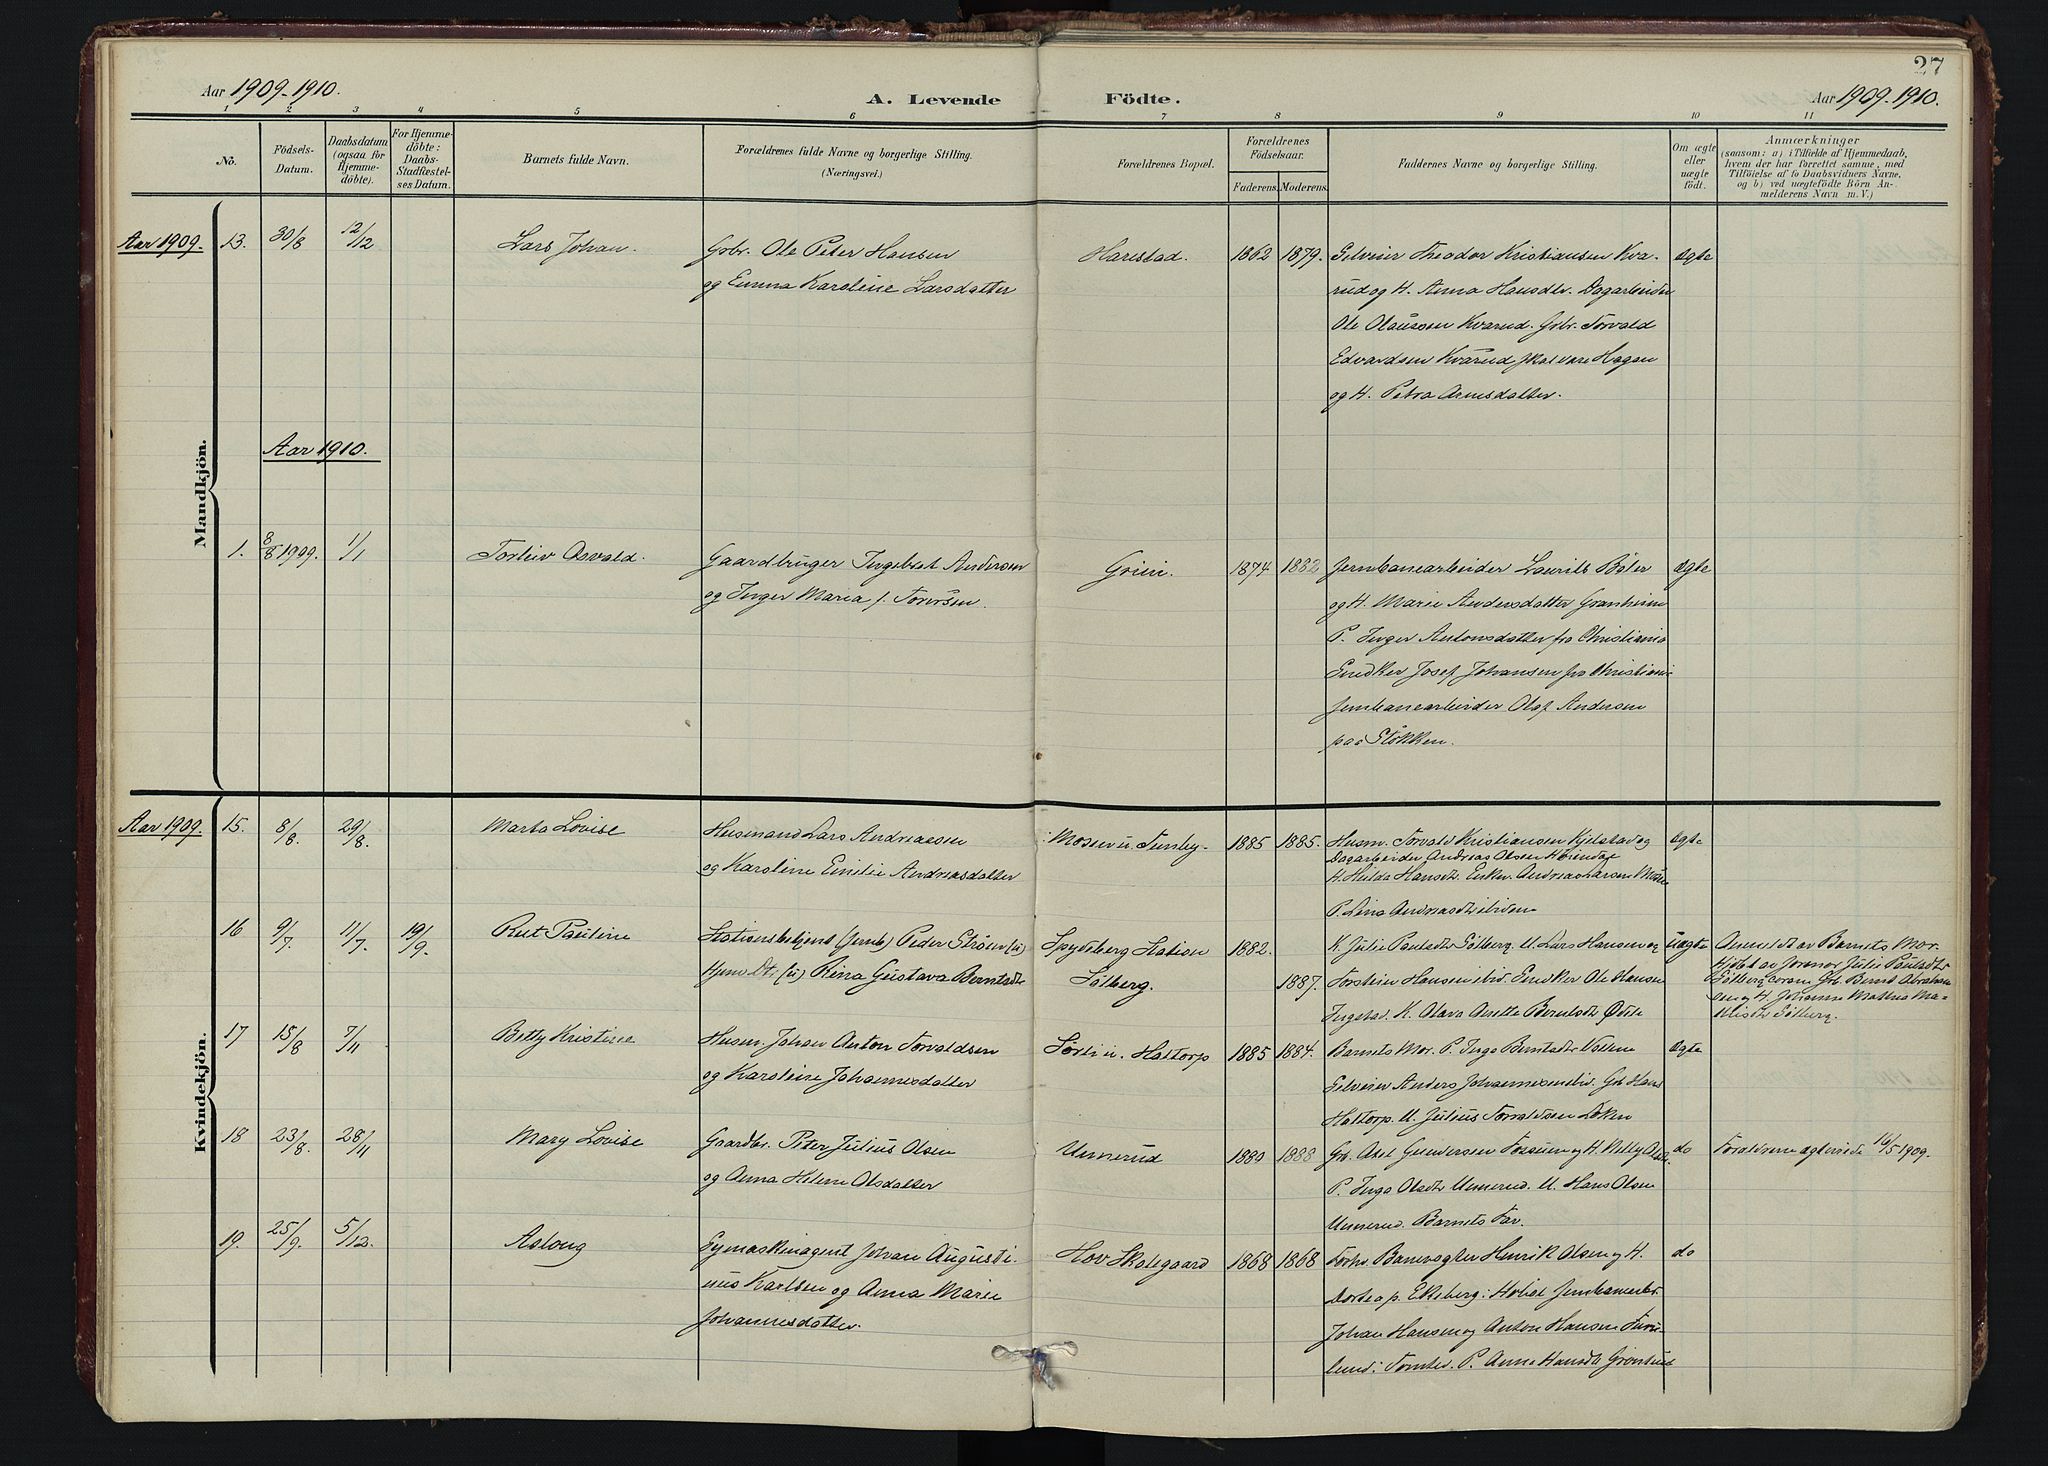 27
Aar 1909-1910.
A. Levende Födte.
Aar 1909-1910.
1 2 3 4 5 6 7 8 9 10 11
No.
Födsels-Datum.
Daabsdatum (ogsaa for Hjemmedöbte).
For Hjemmedöbte: Daabs-Stadfæstelses Datum.
Barnets fulde Navn.
Forældrenes fulde Navne og borgerlige Stilling.
(Næringsvei.)
Forældrenes Bopæl.
Forældrenes Födselsaar.
Faderens. Moderens.
Faddernes Navne og borgerlige Stilling.
Om ægte eller uægte födt.
Anmærkninger
(saasom: a) i Tilfælde af Hjemmedaab,
hvem der har forrettet samme, med
Tilföielse af to Daabsvidners Navne,
og b) ved uægtefödte Börn An-
melderens Navn m. V.)
Mandkjön.
Aar 1909. 13. 30/8 12/12 Lars Johan. Grbr. Ole Peter Hansen Harestad. 1862 1879. Selveier Theodor Kristiansen Kva-
Ægte
og Emma Karoline Larsdatter
rud og H. Anna Hansdtr. Dagarbeider
Ole Olaussen Kvarud. Grbr. Torvald
Edvardsen Kvarud skal være Hagen
og H. Petra Arnesdatter.
Aar 1910.
1. 8/8 1909. 1/1 Torleiv Osvald. Gaardbruger Ingebret Andersen 1874 1882 Jernbanearbeider Laurits Böler Ægte
og Inger Maria f. Torersen.
og H. Marie Andersdatter Granheim
P. Inger Antonsdatter fra Christiania
Snedker Josef Johansen fra Christiania
Jernbanearbeider Olaf Andersen
paa Stokken.
Kvindekjön.
Aar 1909. 15. 8/8. 29/8. Marta Lovise Husmand Lars Andreassen Mosen u. Tenby. 1885 1885. Husm. Torvald Kristiansen Kjelstad og Ægte
og Karoline Emilie Andreasdatter
Dagarbeider Andreas Olsen
H. Hulda Hansdtr. Enkem. Andreas Larsen Mosen
P. Lina Andreasdtr ibidem
16 9/7. 11/7 19/9. Rut Pauline Stationsbetjent (Jernb) Peder Ström (u) Spydeberg Station 1882. K. Julie Paulsdtr Solberg. U. Lars Hansen og Uægte Anmeldt av Barnets Mor.
Hjem Dtr (u) Rina Gustava Berntsdtr Solberg. 1887. Torstein Hansen ibid. Snedker Ole Hansen
Hjdöbt av Jormor Julie Paulsdtr
Solberg coram Grb. Bernt Abraham-
sen og H. Johanne Mathea Ma-
Solberg.
K. Olava Anette Berntsdtr
17 15/8 7/11 Betty Kristine Husm. Johan Anton Torvaldsen u. Haltorp 1885 1884. Barnets Mor. P. Inga Berntsdtr Vollene Ægte
og Karoline Johannesdatter
Selveier Anders Johannesen ibid. Grb Hans
Haltorp. U. Julius Torvaldsen Löken
18 23/8. 28/11 Mary Lovise Gaardbr. Peter Julius Olsen Unnerud 1889 1888 Grb. Axel Gundersen Fossum og H. Nelly do Forældrene ægteviede 16/5 1909.
og Anna Helene Olsdatter
P. Inga Olsdtr Unnerud. U. Hans Olsen
Unnerud. Barnets Far.
19. 25/9. 5/12. Aslaug Symaskinagent Johan Augusti- Hov Skolegaard 1868 1868 Forhv. Banevogter Henrik Olsen og H. do
nus Karlsen og Anna Marie
Dortea p. Ekeberg i Höböl Jernbanearbr.
Johannesdatter.
Johan Hansen og Anton Hansen Furu-
lund i Tomter. P. Anna Hansdtr Grönsund